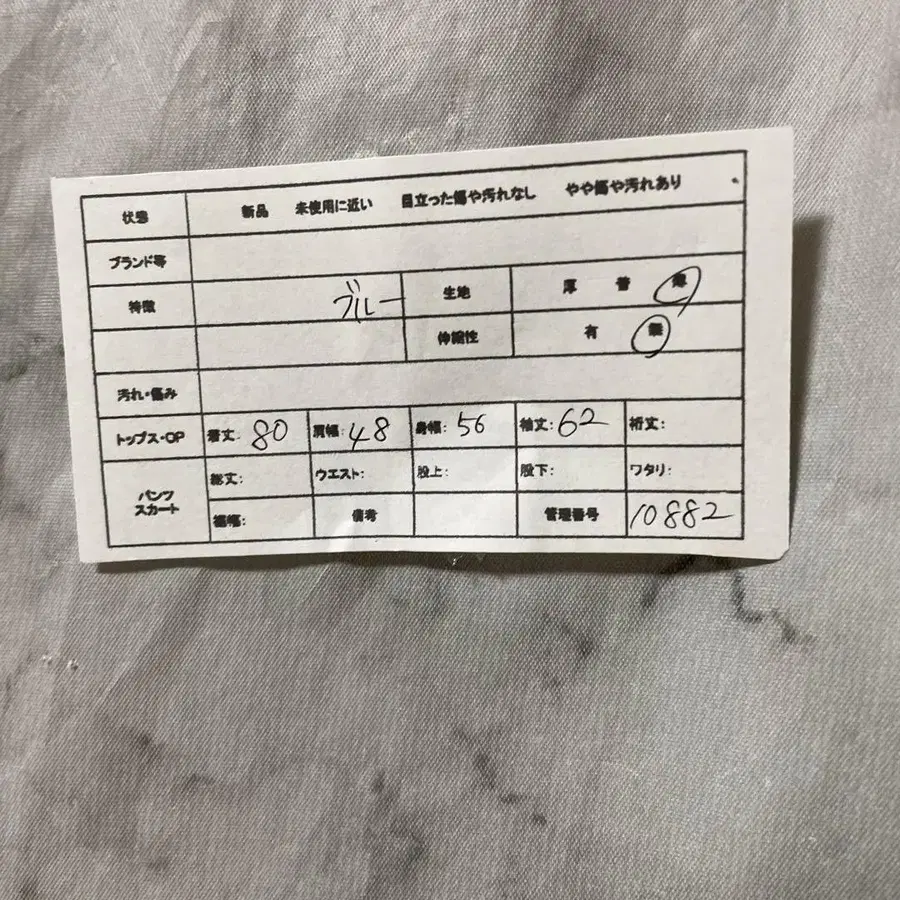 状態 新品 未使用に近い 目立った傷や汚れなし やや傷や汚れあり
ブランド等
特徴 ブルー 生地 厚 普 薄
伸縮性 有 無
汚れ・傷み
トップス・OP 着丈: 80 肩幅: 48 身幅: 56 袖丈: 62 裄丈:
パンツ スカート 総丈: ウエスト: 股上: 股下: ワタリ:
裾幅: 備考 管理番号 10882